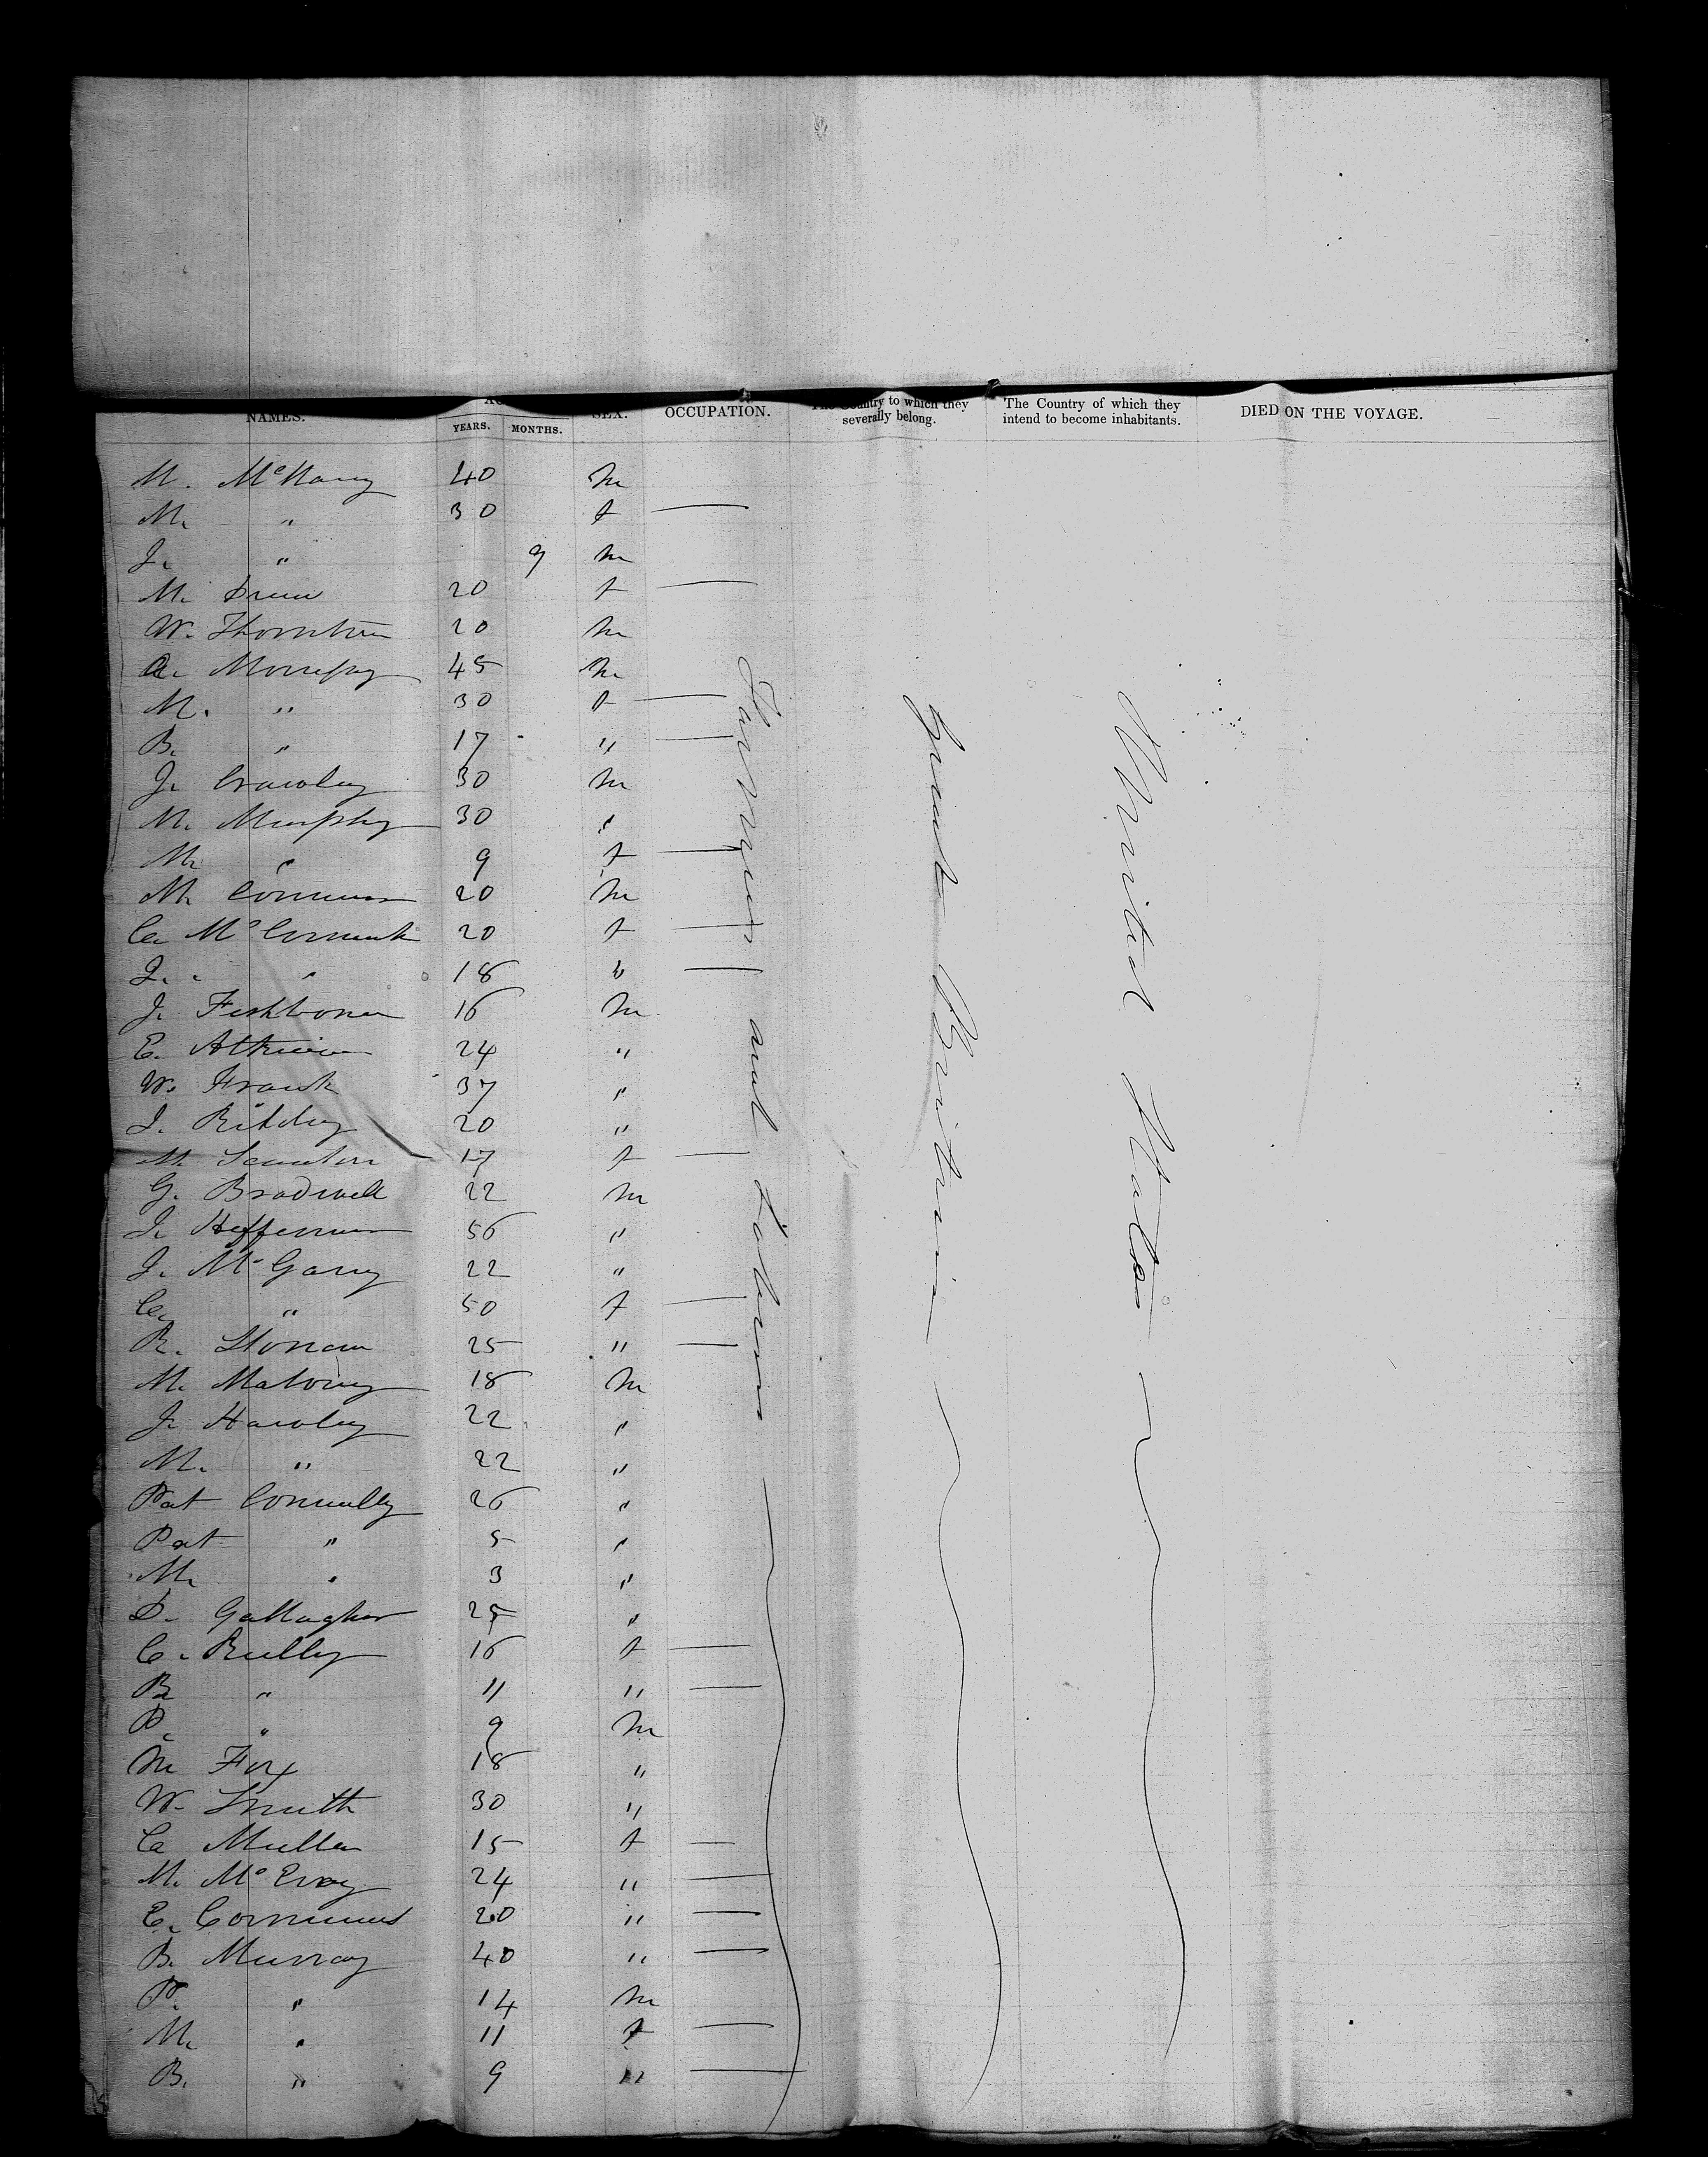 NAMES. YEARS. MONTHS. SEX. OCCUPATION. The Country to which they severally belong. The Country of which they intend to become inhabitants. DIED ON THE VOYAGE.
M. 40 m
M. " 30 f —
J. " 9 m
M. 20 f —
W. Thornton 20 m
45 m
M. " 30 f —
B. " 17 " —
J. Crawley 30 m
M. Murphy 30 "
M. " 9 f —
M. 20 m
Ca. McCormick 20 f —
" 18 " —
J. Fishbone 16 m
E. Atkinson 24 "
W. Frank 37 "
J. 20 "
M. Scanlon 17 f —
G. Bradwell 22 m
J. Heffernan 56 "
J. McGarry 22 "
Ca. " 50 f —
R. 25 " —
M. Mahoney 18 m
J. Hawley 22 "
M. " 22 "
Pat Connelly 26 "
Pat " 5 "
M. " 3 "
D. Gallagher 25 "
C. Reilly 16 f —
B. " 11 " —
P. " 9 m
M Fox 18 "
W. Smith 30 "
Ca Mullen 15 f —
M. McEvoy 24 " —
E. 20 " —
B. Murray 40 " —
P. " 14 m
M. " 11 f —
B. " 9 " —
Farmers and Labors
Great Britain
United States